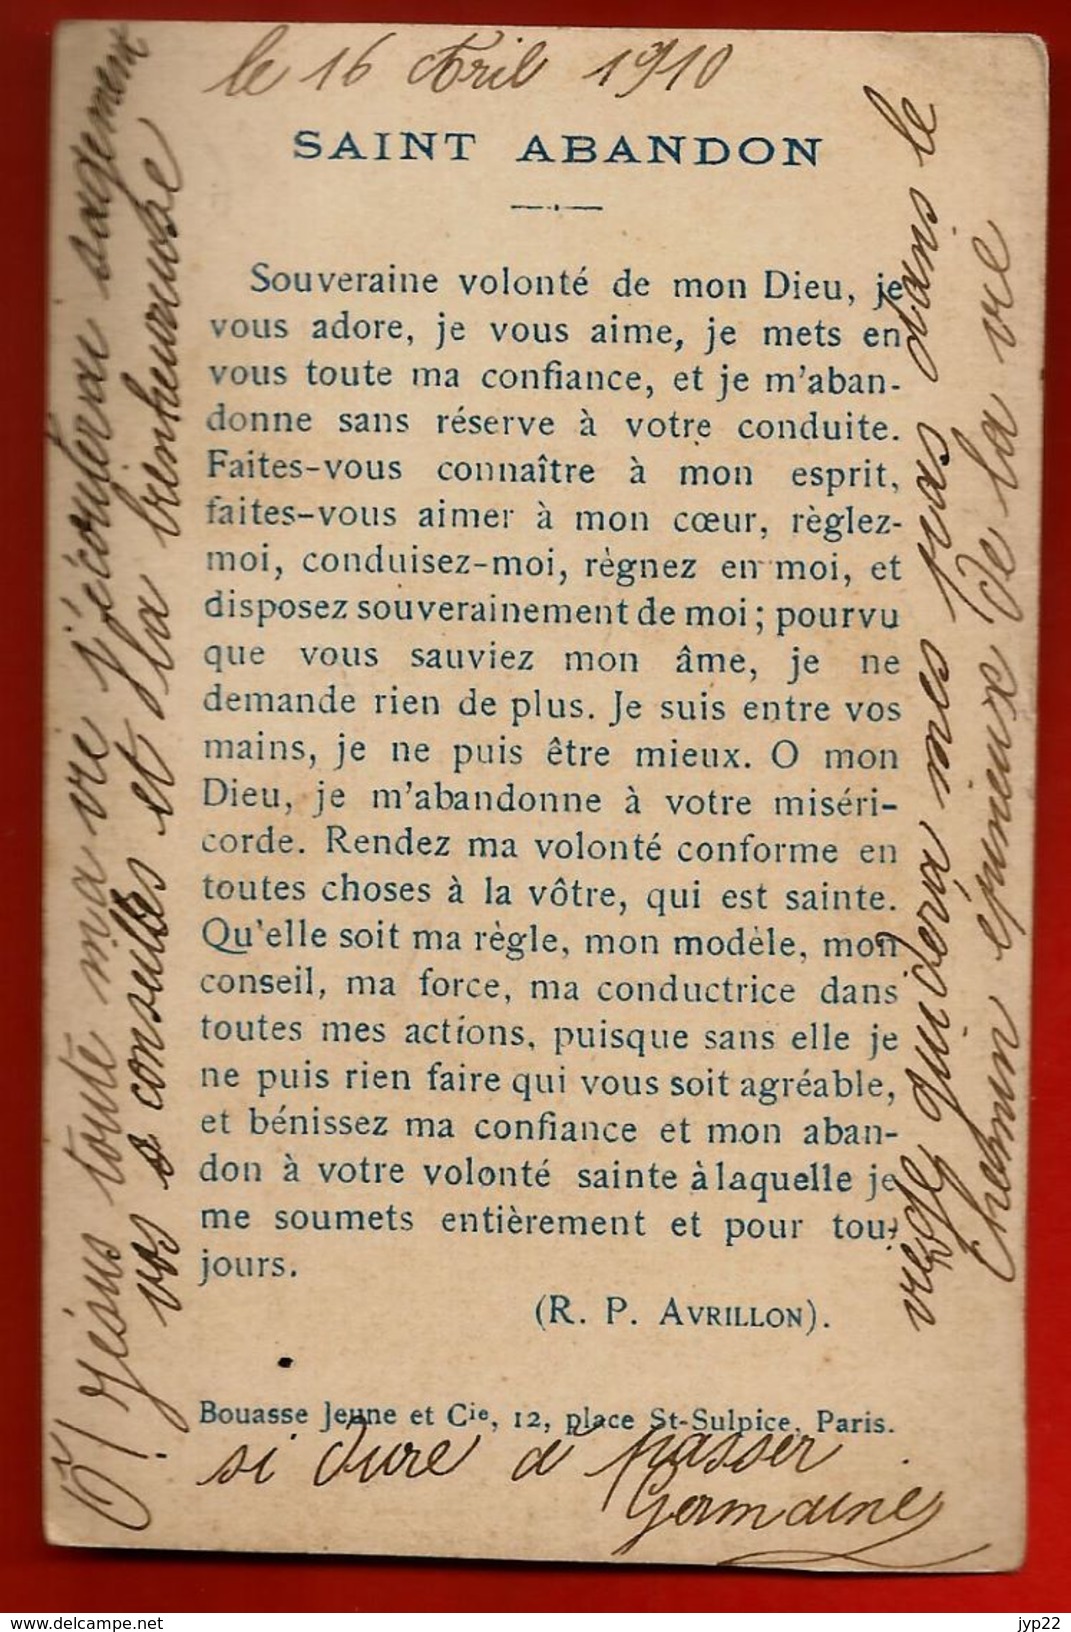 le 16 Avril 1910
SAINT ABANDON
Souveraine volonté de mon Dieu, je
vous adore, je vous aime, je mets en
vous toute ma confiance, et je m'aban-
donne sans réserve à votre conduite.
Faites-vous connaître à mon esprit,
faites-vous aimer à mon cœur, règlez-
moi, conduisez-moi, règnez en moi, et
disposez souverainement de moi ; pourvu
que vous sauviez mon âme, je ne
demande rien de plus. Je suis entre vos
mains, je ne puis être mieux. O mon
Dieu, je m'abandonne à votre miséri-
corde. Rendez ma volonté conforme en
toutes choses à la vôtre, qui est sainte.
Qu'elle soit ma règle, mon modèle, mon
conseil, ma force, ma conductrice dans
toutes mes actions, puisque sans elle je
ne puis rien faire qui vous soit agréable,
et bénissez ma confiance et mon aban-
don à votre volonté sainte à laquelle je
me soumets entièrement et pour tou-
jours.
(R. P. AVRILLON).
Bouasse Jeune et Cie, 12, place St-Sulpice, Paris.
Ô! Jésus toute ma vie j'écouterai sagement
vos conseils et la bienheureuse
vierge guidera mes pas dans le
chemin épineux de la vie
si dure à passer
Germaine
delcampe.net
jyp22